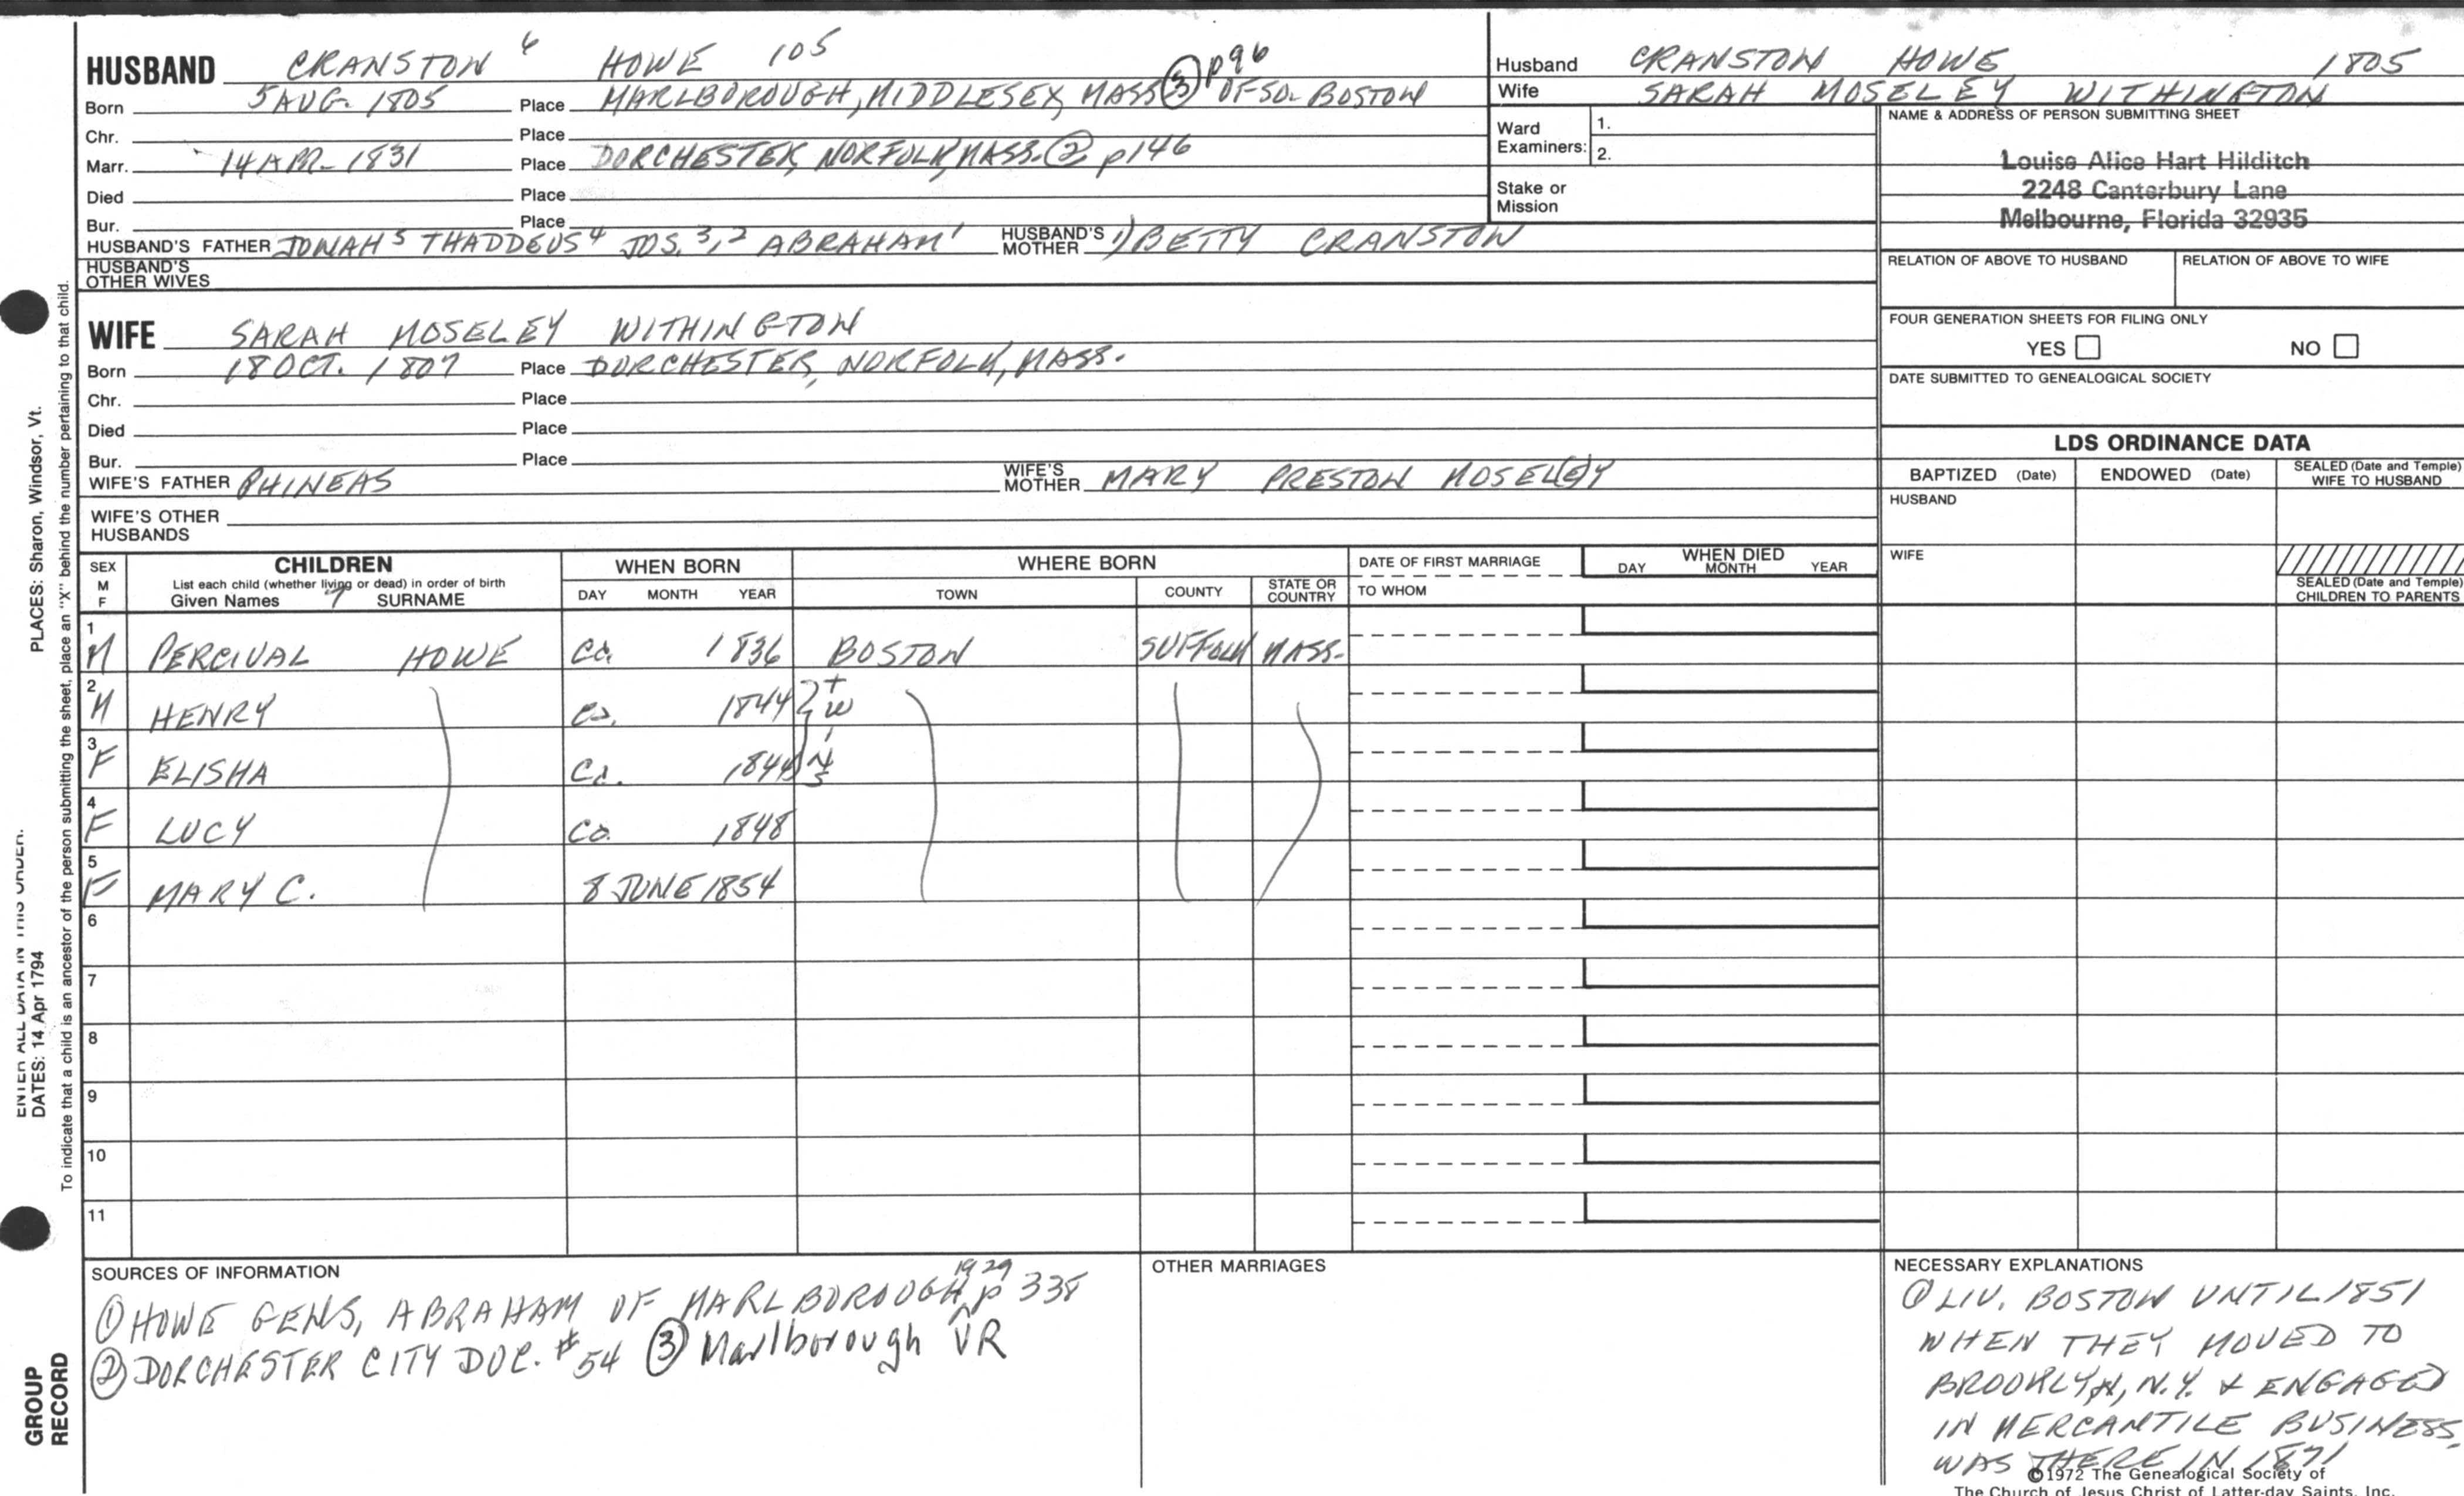 HUSBAND CRANSTON 6 HOWE 105
Born 5 AUG. 1805 Place MARLBOROUGH, MIDDLESEX, MASS (3) p96 OF SO. BOSTON
Chr. Place
Marr. 14 APR. 1831 Place DORCHESTER, NORFOLK, MASS. (2) p146
Died Place
Bur. Place
HUSBAND'S FATHER JONAH 5 THADDEUS 4 JOS. 3,2 ABRAHAM 1 HUSBAND'S MOTHER 1) BETTY CRANSTON
HUSBAND'S OTHER WIVES
WIFE SARAH MOSELEY WITHINGTON
Born 18 OCT. 1807 Place DORCHESTER, NORFOLK, MASS.
Chr. Place
Died Place
Bur. Place
WIFE'S FATHER PHINEAS WIFE'S MOTHER MARY PRESTON MOSEL(E)Y
WIFE'S OTHER HUSBANDS
Husband CRANSTON HOWE 1805
Wife SARAH MOSELEY WITHINGTON
Ward Examiners: 1.
2.
Stake or Mission
NAME & ADDRESS OF PERSON SUBMITTING SHEET
Louise Alice Hart Hilditch
2248 Canterbury Lane
Melbourne, Florida 32935
RELATION OF ABOVE TO HUSBAND RELATION OF ABOVE TO WIFE
FOUR GENERATION SHEETS FOR FILING ONLY
YES NO
DATE SUBMITTED TO GENEALOGICAL SOCIETY
LDS ORDINANCE DATA
BAPTIZED (Date) ENDOWED (Date) SEALED (Date and Temple) WIFE TO HUSBAND
HUSBAND
WIFE
SEALED (Date and Temple) CHILDREN TO PARENTS
SEX M F CHILDREN WHEN BORN WHERE BORN DATE OF FIRST MARRIAGE WHEN DIED
List each child (whether living or dead) in order of birth
Given Names 7 SURNAME DAY MONTH YEAR TOWN COUNTY STATE OR COUNTRY TO WHOM DAY MONTH YEAR
1 M PERCIVAL HOWE Ca. 1836 BOSTON SUFFOLK MASS.
2 M HENRY Ca. 1844
3 F ELISHA Ca. 1844
4 F LUCY Ca. 1848
5 F MARY C. 8 JUNE 1854
6
7
8
9
10
11
SOURCES OF INFORMATION
(1) HOWE GENS, ABRAHAM OF MARLBOROUGH, 1929 p 338
(2) DORCHESTER CITY DOC. #54 (3) Marlborough VR
OTHER MARRIAGES
NECESSARY EXPLANATIONS
(1) LIV. BOSTON UNTIL 1851
WHEN THEY MOVED TO
BROOKLYN, N.Y. & ENGAGED
IN MERCANTILE BUSINESS.
WAS THERE IN 1871
©1972 The Genealogical Society of
The Church of Jesus Christ of Latter-day Saints, Inc.
PLACES: Sharon, Windsor, Vt.
To indicate that a child is an ancestor of the person submitting the sheet, place an "X" behind the number pertaining to that child.
ENTER ALL DATA IN THIS ORDER:
DATES: 14 Apr 1794
GROUP
RECORD